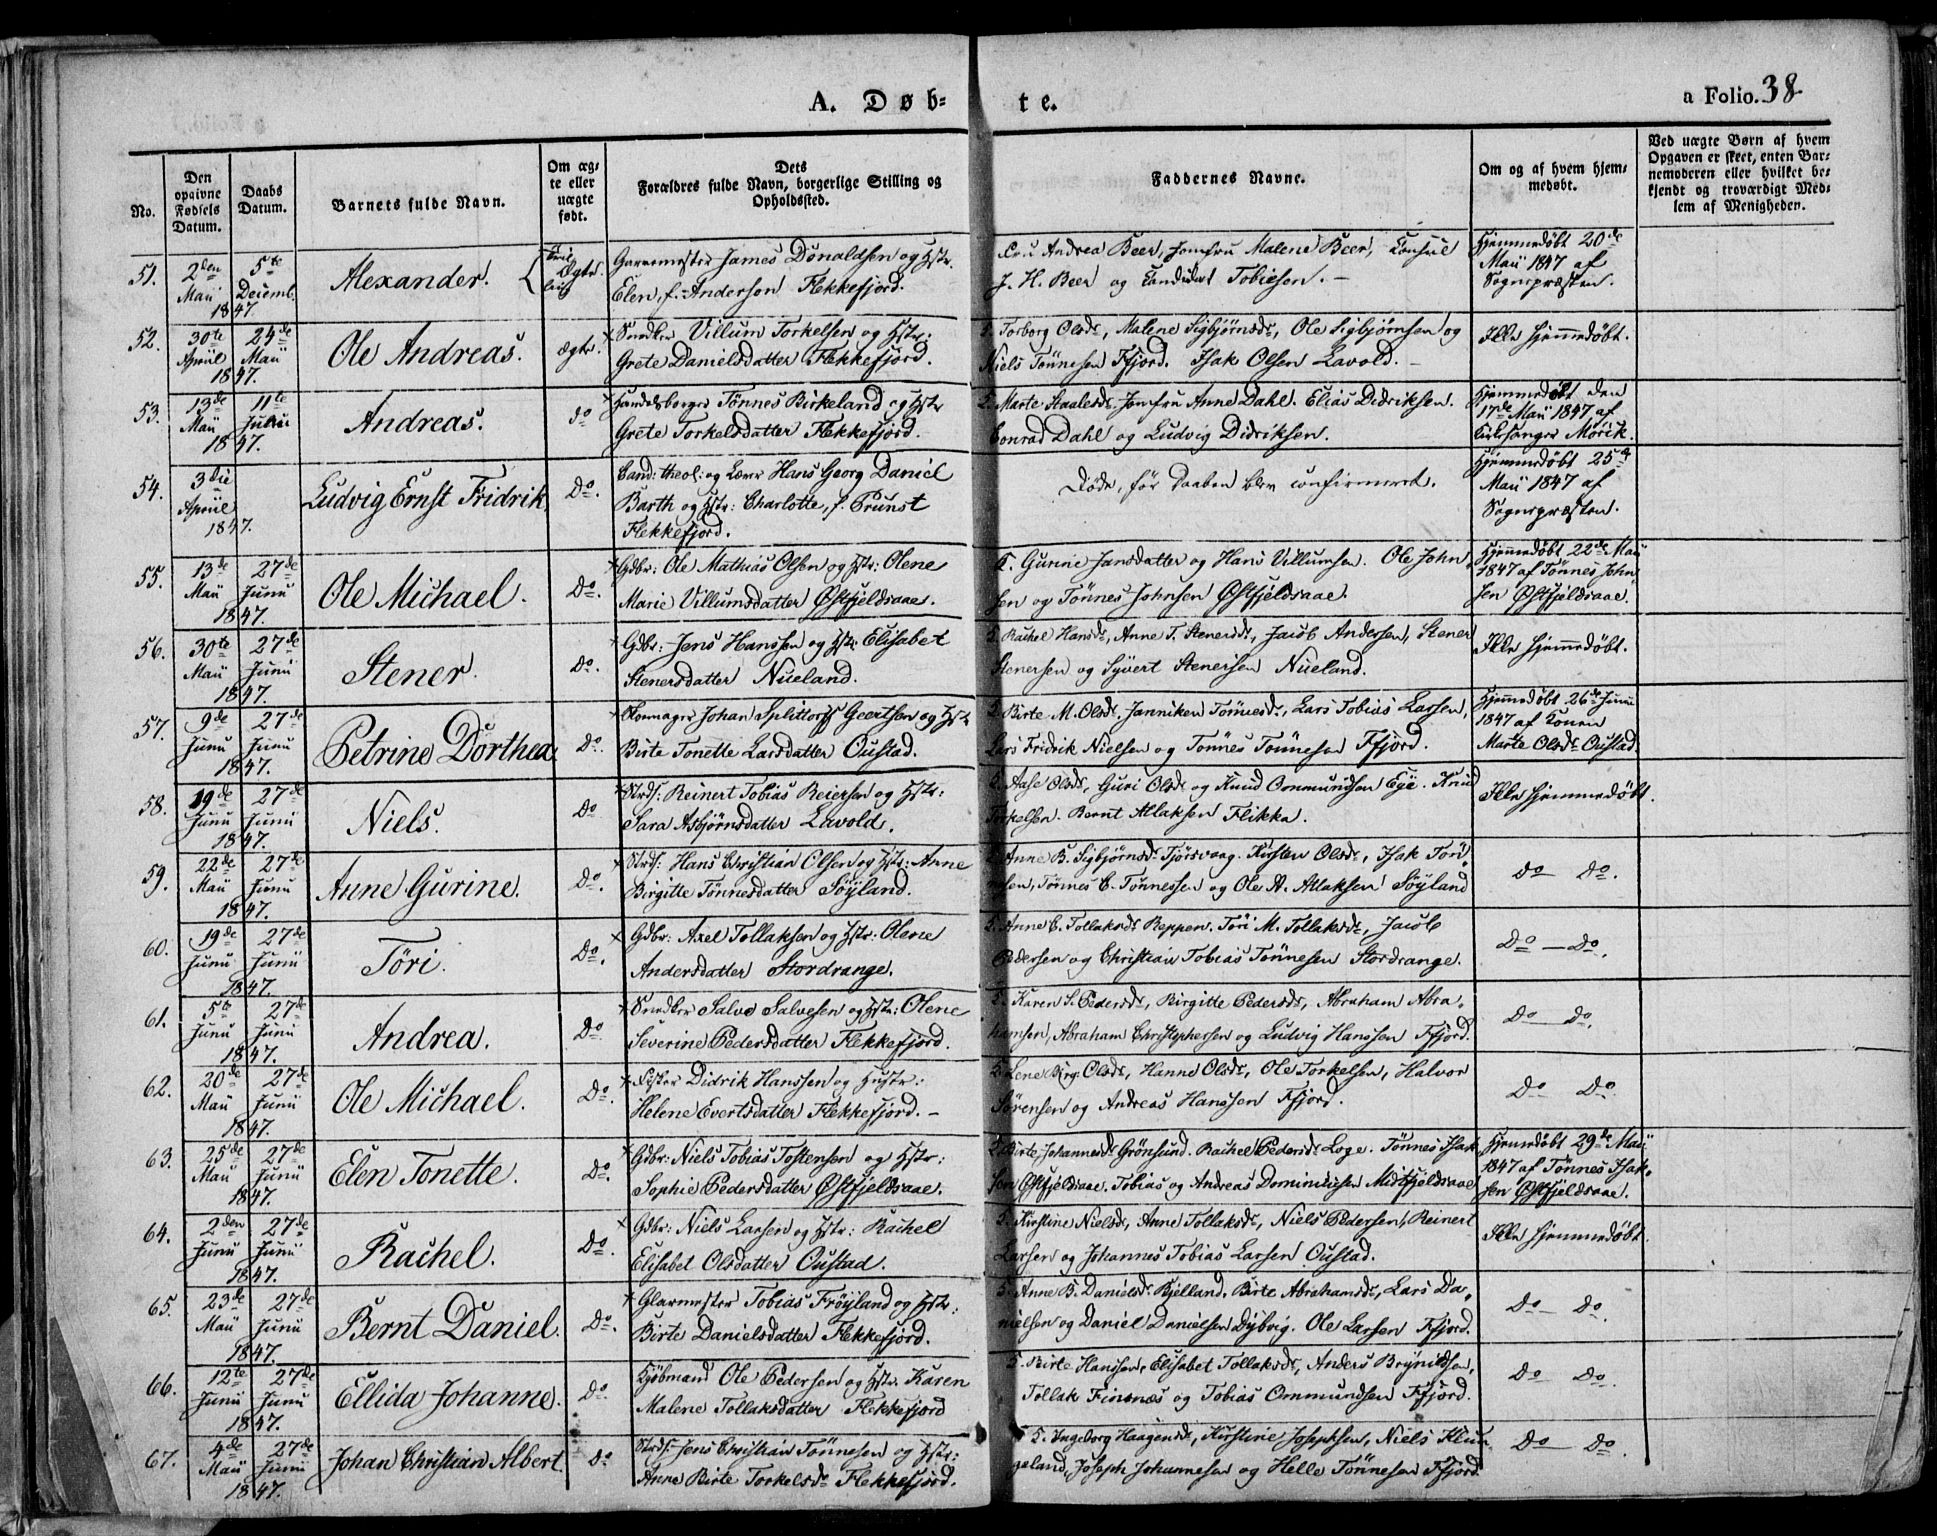 A. Døb- te.
a Folio. 38
No.
Den opgivne Fødsels Datum.
Daabs Datum.
Barnets fulde Navn.
Om ægte eller uægte født.
Dets Forældres fulde Navn, borgerlige Stilling og Opholdssted.
Faddernes Navne.
Om og af hvem hjemmedøbt.
Ved uægte Børn af hvem Opgaven er skeet, enten Barnemoderen eller hvilket bekjendt og troværdigt Medlem af Menigheden.
51. 2den Maii 5te Decemb. 1847. Alexander. Ægte.
Garvemester James Donaldsen og Hstr.
Elen, f. Anderson Flekkefjord.
Fru Andrea Beer, Jomfru Malene Beer, Consul
J. H. Beer og Candidat Tobiesen. –
Hjemmedøbt 20de
Maii 1847 af
Sognepræsten.
52. 30te April 24de Maii 1847. Ole Andreas. ægte.
Snedker Villum Torkelsen og Hstr.
Grete Danielsdatter Flekkefjord.
Torborg Olsdr, Malene Sigbjørnsdr, Ole Sigbjørnsen og
Niels Tønnesen Ffjord. Isak Olsen Lavold. –
Ikke hjemmedøbt.
53. 13de Maii 11te 1847. Andreas. do
Handelsborger Tønnes Birkeland og Hstr
Grete Torkelsdatter Flekkefjord.
Marte Staalesdr. Jomfru Anne Dahl. Elias Didriksen.
Conrad Dahl og Ludvig Didriksen.
Hjemmedøbt den
17de Maii 1847 af
Kirkesanger Mørik.
54. 3die April 1847. Ludvig Ernst Fridrik Do.
Cand: theol: og Lærer Hans Georg Daniel
Barth og Hstr: Charlotte, f. Prunst
Flekkefjord.
Døde, før Daaben blev confirmeret.
Hjemmedøbt 25de
Maii 1847 af
Sognepræsten.
55. 13de Maii 27de Junii 1847. Ole Michael. Do.
Gdbr: Ole Mathias Olsen og Hstr: Olene
Marie Villumsdatter Østfjeldsaae.
5. Gunne Jansdatter og Hans Villumsen. Ole John
sen og Tønnes Johnsen Østfjeldsaae.
Hjemmedøbt 22de Maii
1847 af Tønnes John
sen Østfjeldsaae.
56. 30te Maii 27de Junii 1847. Stener. Do.
Gdbr: Jens Hanssen og Hstr Elisabet
Stenersdatter Nueland.
5. Rachel Hansdr, Anne T. Stenersdr, Jacob Andersen, Stener
Stenersen og Syvert Stenersen Nueland.
Ikke hjemmedøbt.
57. 9de Junii 27de Junii 1847. Petrine Dorthea Do.
Skomager Johan Splittorff Geertsen og Hstr
Birte Tonette Larsdatter Oustad.
5. Birte M. Olsdr, Janniken Tønnesdr, Lars Tobias Larsen,
Lars Fridrik Nielsen og Tønnes Tønnesen Ffjord.
Hjemmedøbt 26de Junii
1847 af Konen
Marte Olsdr Oustad.
58. 19de Junii 27de Junii 1847. Niels. Do
Strdf: Reinert Tobias Reiersen og Hstr:
Sara Asbjørnsdatter Lavold.
5. Aase Olsdr, Guri Olsdr og Knud Ommundsen Eye. Knud
Torkelsen. Bernt Atlaksen Flikka.
Ikke hjemmedøbt.
59. 22de Maii 27de Junii 1847. Anne Gurine. Do.
Strdf: Hans Christian Olsen og Hstr: Anne
Birgitte Tønnesdatter Søyland.
Anne B. Sigbjørnsdr Tjørsvaag. Kirsten Olsdr, Isak Tøn
nesen, Tønnes C. Tønnessen og Ole A. Atlaksen Søyland
Do – Do.
60. 19de Junii 27de Junii 1847. Töri. Do.
Gdbr: Axel Tollaksen og Hstr: Olene
Andersdatter Stordrange.
5. Anne C. Tollaksdr Reppen. Töri M. Tollaksdr, Jacob
Pedersen og Christian Tobias Tønnesen Stordrange.
Do – Do.
61. 5te Junii 27de Junii 1847. Andrea. Do
Snedker Salve Salvesen og Hstr: Olene
Severine Pedersdatter Flekkefjord.
5. Karen S. Pedersdr, Birgitte Pedersdr, Abraham Abra-
hamsen, Abraham Christophersen og Ludvig Hanssen Ffjord.
Do – Do.
62. 20de Maii 27de Junii 1847. Ole Michael. Do.
Fisker Didrik Hanssen og Hustr:
Helene Evertsdatter Flekkefjord. –
5. Lene Birg. Olsdr, Hanne Olsdr, Ole Torkelsen, Halvor
Sørensen og Andreas Hanssen Ffjord.
Do Do.
63. 25de Maii 27de Junii 1847. Elen Tonette. Do.
Gdbr: Niels Tobias Tostensen og Hstr:
Sophie Pedersdatter Østfjeldsaae.
5. Birte Johannesdr Grönsund. Rachel Pedersdr Loge. Tønnes Isak
sen Østfjeldsaae. Tobias og Andreas Dominicusen Midtfjeldsaae
Hjemmedøbt 29de Maii
1847 af Tønnes Isak-
sen Østfjeldsaae.
64. 2den Junii 27de Junii 1847. Rachel. Do.
Gdbr: Niels Larsen og Hstr: Rachel
Elisabet Olsdatter Oustad.
5. Kirstine Nielsdr, Anne Tollaksdr, Niels Pedersen, Reinert
Larsen og Johannes Tobias Larsen Oustad.
Ikke hjemmedøbt.
65. 23de Maii 27de Junii 1847. Bernt Daniel. Do.
Glarmester Tobias Frøyland og Hstr:
Birte Danielsdatter Flekkefjord.
5. Anne B. Danielsdr Kjelland. Birte Abrahamsdr, Lars Da-
nielsen og Daniel Danielsen Dybvig. Ole Larsen Ffjord.
Do – Do.
66. 12te Junii 27de Junii 1847. Ellida Johanne. Do.
Kjøbmand Ole Pedersen og Hstr. Karen
Malene Tollaksdatter Flekkefjord
5. Birte Hanssen, Elisabet Tollaksdr, Anders Bryníldsen,
Tollak Finsnæs og Tobias Ommundsen Ffjord.
Do Do.
67. 4de Maii 27de Junii 1847. Johan Christian Albert. Do
Strdf: Jens Christian Tønnesen og Hstr:
Anne Birte Torkelsdr Flekkefjord.
5. Ingeborg Haagensdr, Kirstine Josephsen, Niels Klun
geland, Joseph Johannesen og Helle Tønnesen Ffjord.
Do – Do.